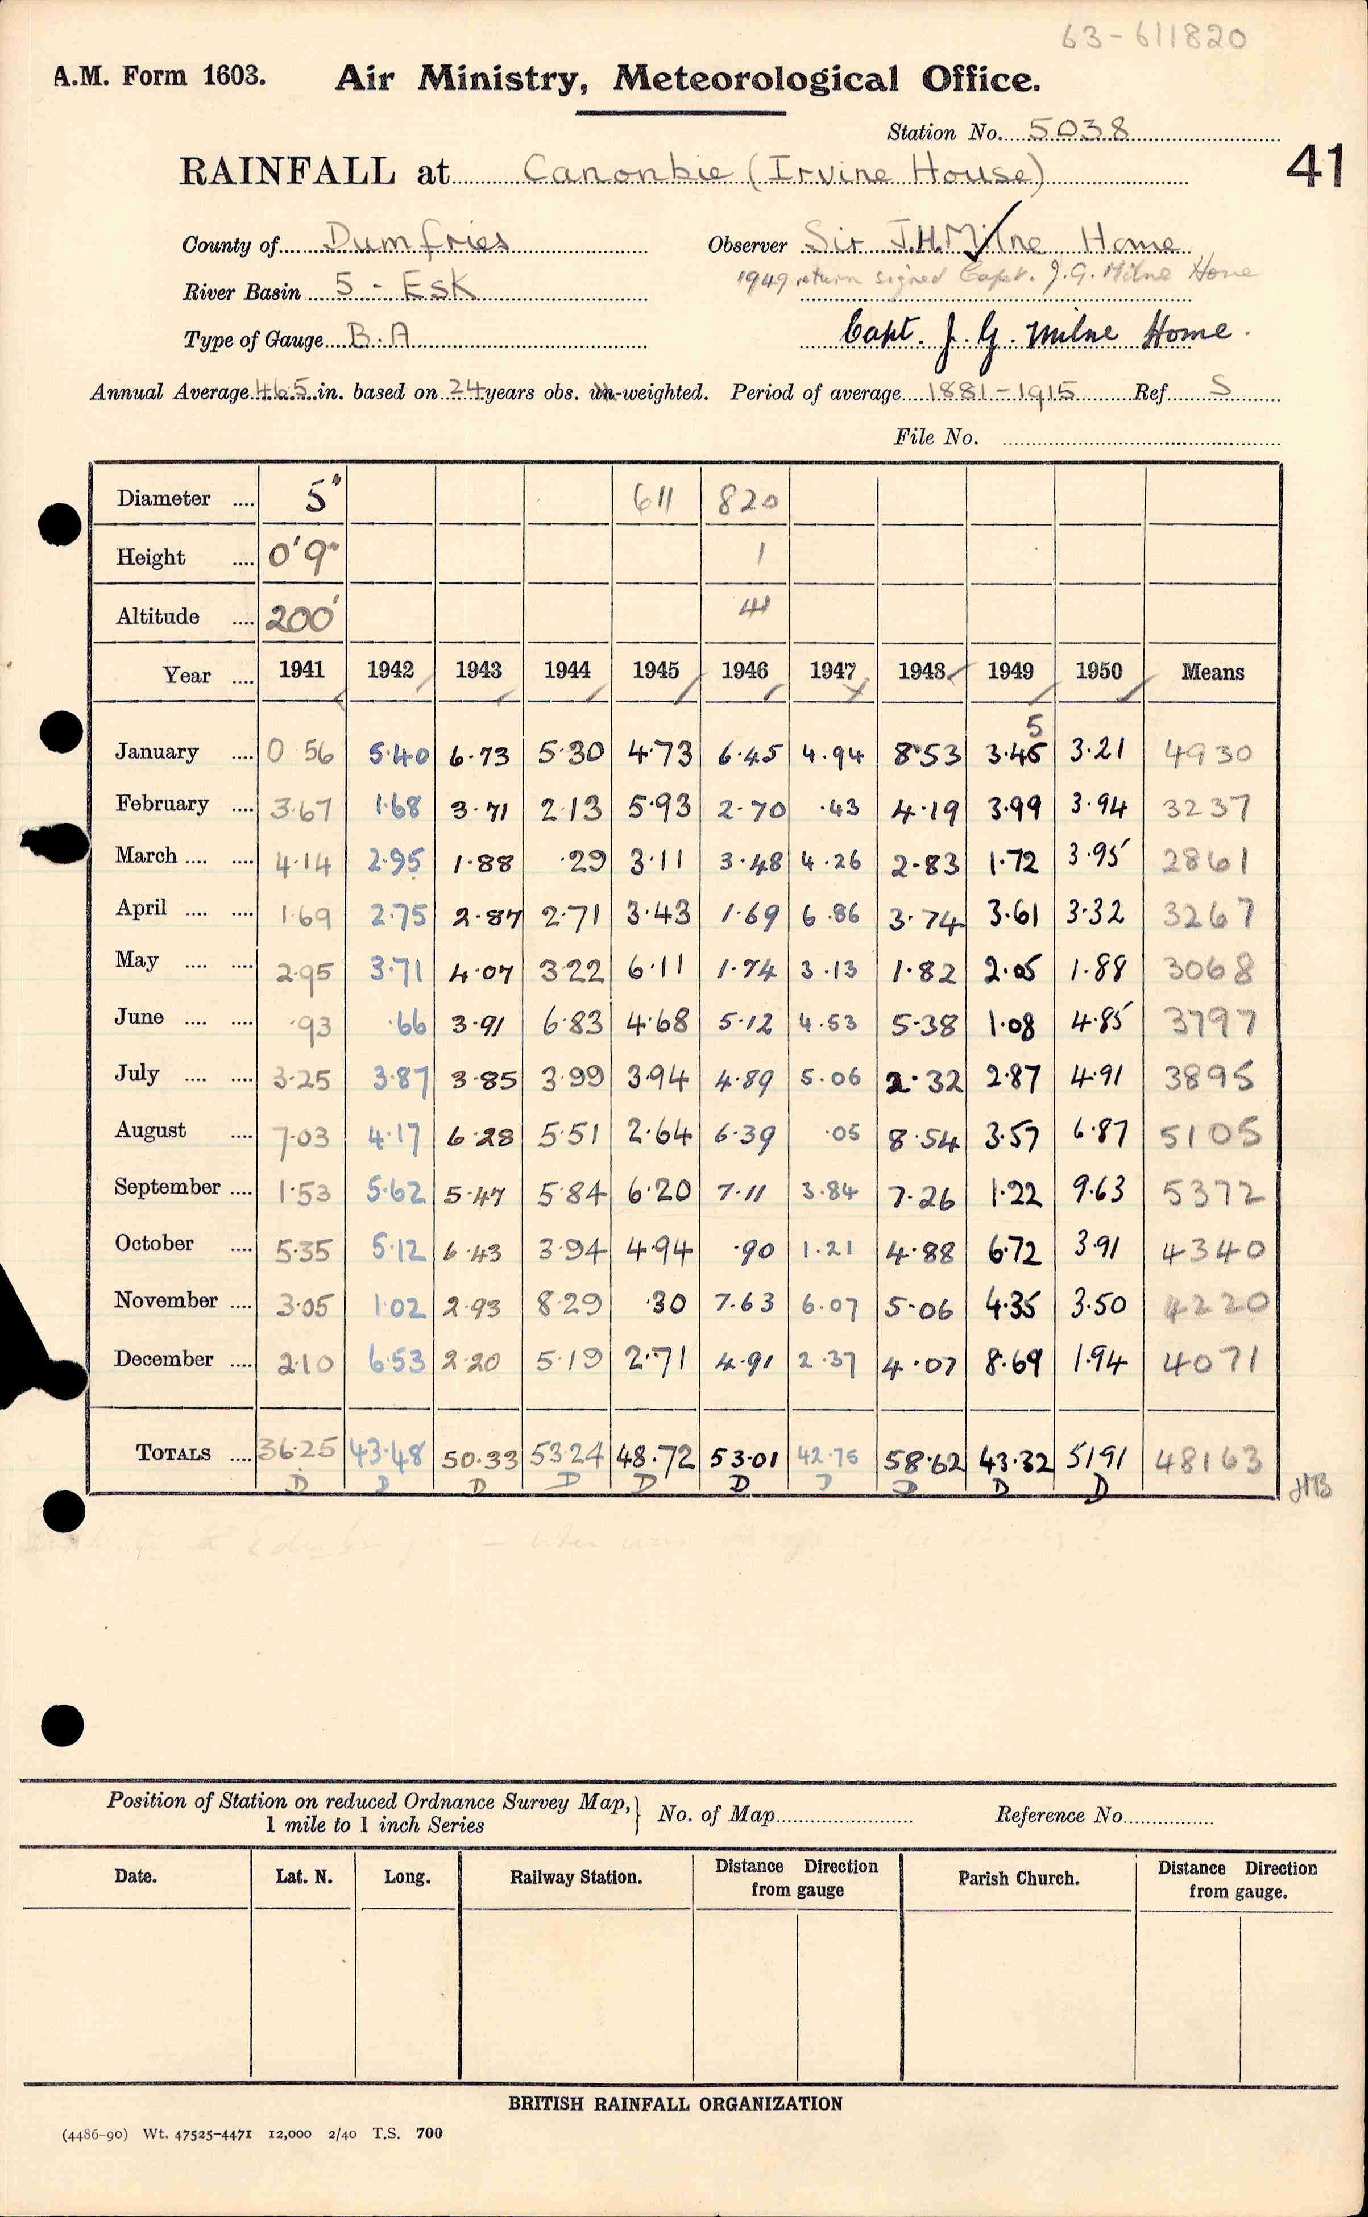 63-611820
A.M. Form 1603. Air Ministry, Meteorological Office.
Station No. 5038
41
RAINFALL at Canonbie (Irvine House)
County of Dumfries Observer Sir J.H. Milne Home
1949 return signed Capt. J.G. Milne Home
River Basin 5 - Esk
Type of Gauge B.A Capt. J. G. Milne Home.
Annual Average 46.5 in. based on 24 years obs. un-weighted. Period of average 1881-1915 Ref. S
File No.
Diameter .... 5" 611 820
Height .... 0'9" 1
Altitude .... 200' 41
Year .... 1941 1942 1943 1944 1945 1946 1947 1948 1949 1950 Means
5
January .... 0 56 5.40 6.73 5.30 4.73 6.45 4.94 8.53 3.45 3.21 4930
February .... 3.67 1.68 3.71 2.13 5.93 2.70 .43 4.19 3.99 3.94 3237
March .... .... 4.14 2.95 1.88 .29 3.11 3.48 4.26 2.83 1.72 3.95 2861
April .... .... 1.69 2.75 2.87 2.71 3.43 1.69 6.86 3.74 3.61 3.32 3267
May .... .... 2.95 3.71 4.07 3.22 6.11 1.74 3.13 1.82 2.05 1.88 3068
June .... .... .93 .66 3.91 6.83 4.68 5.12 4.53 5.38 1.08 4.85 3797
July .... .... 3.25 3.87 3.85 3.99 3.94 4.89 5.06 2.32 2.87 4.91 3895
August .... 7.03 4.17 6.28 5.51 2.64 6.39 .05 8.54 3.57 6.87 5105
September .... 1.53 5.62 5.47 5.84 6.20 7.11 3.84 7.26 1.22 9.63 5372
October .... 5.35 5.12 6.43 3.94 4.94 .90 1.21 4.88 6.72 3.91 4340
November .... 3.05 1.02 2.93 8.29 .30 7.63 6.07 5.06 4.35 3.50 4220
December .... 2.10 6.53 2.20 5.19 2.71 4.91 2.37 4.07 8.69 1.94 4071
TOTALS .... 36.25 43.48 50.33 53.24 48.72 53.01 42.75 58.62 43.32 51.91 48163
D D D D D D D D D D HB
Position of Station on reduced Ordnance Survey Map, } No. of Map Reference No.
1 mile to 1 inch Series
Date. Lat. N. Long. Railway Station. Distance Direction from gauge Parish Church. Distance Direction from gauge.
BRITISH RAINFALL ORGANIZATION
(4486-90) Wt. 47525-4471 12,000 2/40 T.S. 700